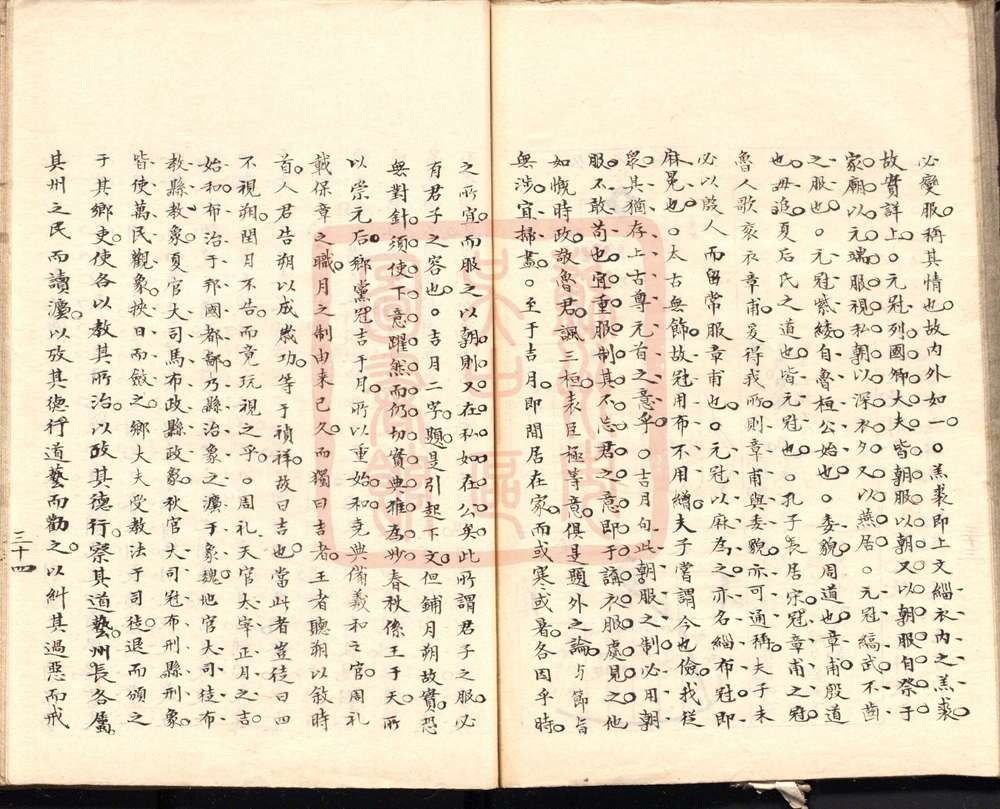 必變服稱其情也故內外如一○羔裘即上文緇衣內之羔裘
故實詳上○元冠列國卿大夫皆朝服以朝又以朝服自祭于
家廟以元端服視私朝以深衣夕又以燕居○元冠縞武不齒
之服也○元冠紫緌自魯桓公始也○委貌周道也章甫殷道
也毋追夏后氏之道也皆元冠也○孔子長居宋冠章甫之冠
魯人歌袞衣章甫爰得我所則章甫與委貌亦可通稱夫子未
必以殷人而留常服章甫也○元冠以麻為之亦名緇布冠即
麻冕也○太古無飾故冠用布不用繒夫子嘗謂今也儉我從
眾其猶存上古尊元首之意乎○吉月句此朝服之制必用朝
服不敢苟也宜重服制其不忘君之意即于講衣服處見之他
如慨時政敬魯君諷三桓表臣極等意俱是題外之論與節旨
無涉宜掃盡○至于吉月即閒居在家而或寒或暑各因乎時
之所宜而服之以朝則又在私如在公矣此所謂君子之服必
有君子之容也○吉月二字題是引起下文但鋪月朔故實恐
無對針須使下意躍然而仍切實典雅為妙春秋係王于天所
以崇元后鄉黨冠吉于月所以重始和堯典備羲和之官周礼
載保章之職月之制由来已久而獨曰吉者王者聽朔以敘時
首人君告朔以成歲功等于禎祥故曰吉也當此者豈徒曰四
不視朔閏月不告而竟玩視之乎○周礼天官太宰正月之吉
始和布治于邦國都鄙乃縣治象之灋于象魏地官大司徒布
教縣教象夏官大司馬布政縣政象秋官大司冦布刑縣刑象
皆使萬民觀象挾日而斂之鄉大夫受教法于司徒退而頒之
于其鄉吏使各以教其所治以攷其德行察其道藝州長各屬
其州之民而讀灋以攷其德行道藝而勸之以糾其過惡而戒
三十四